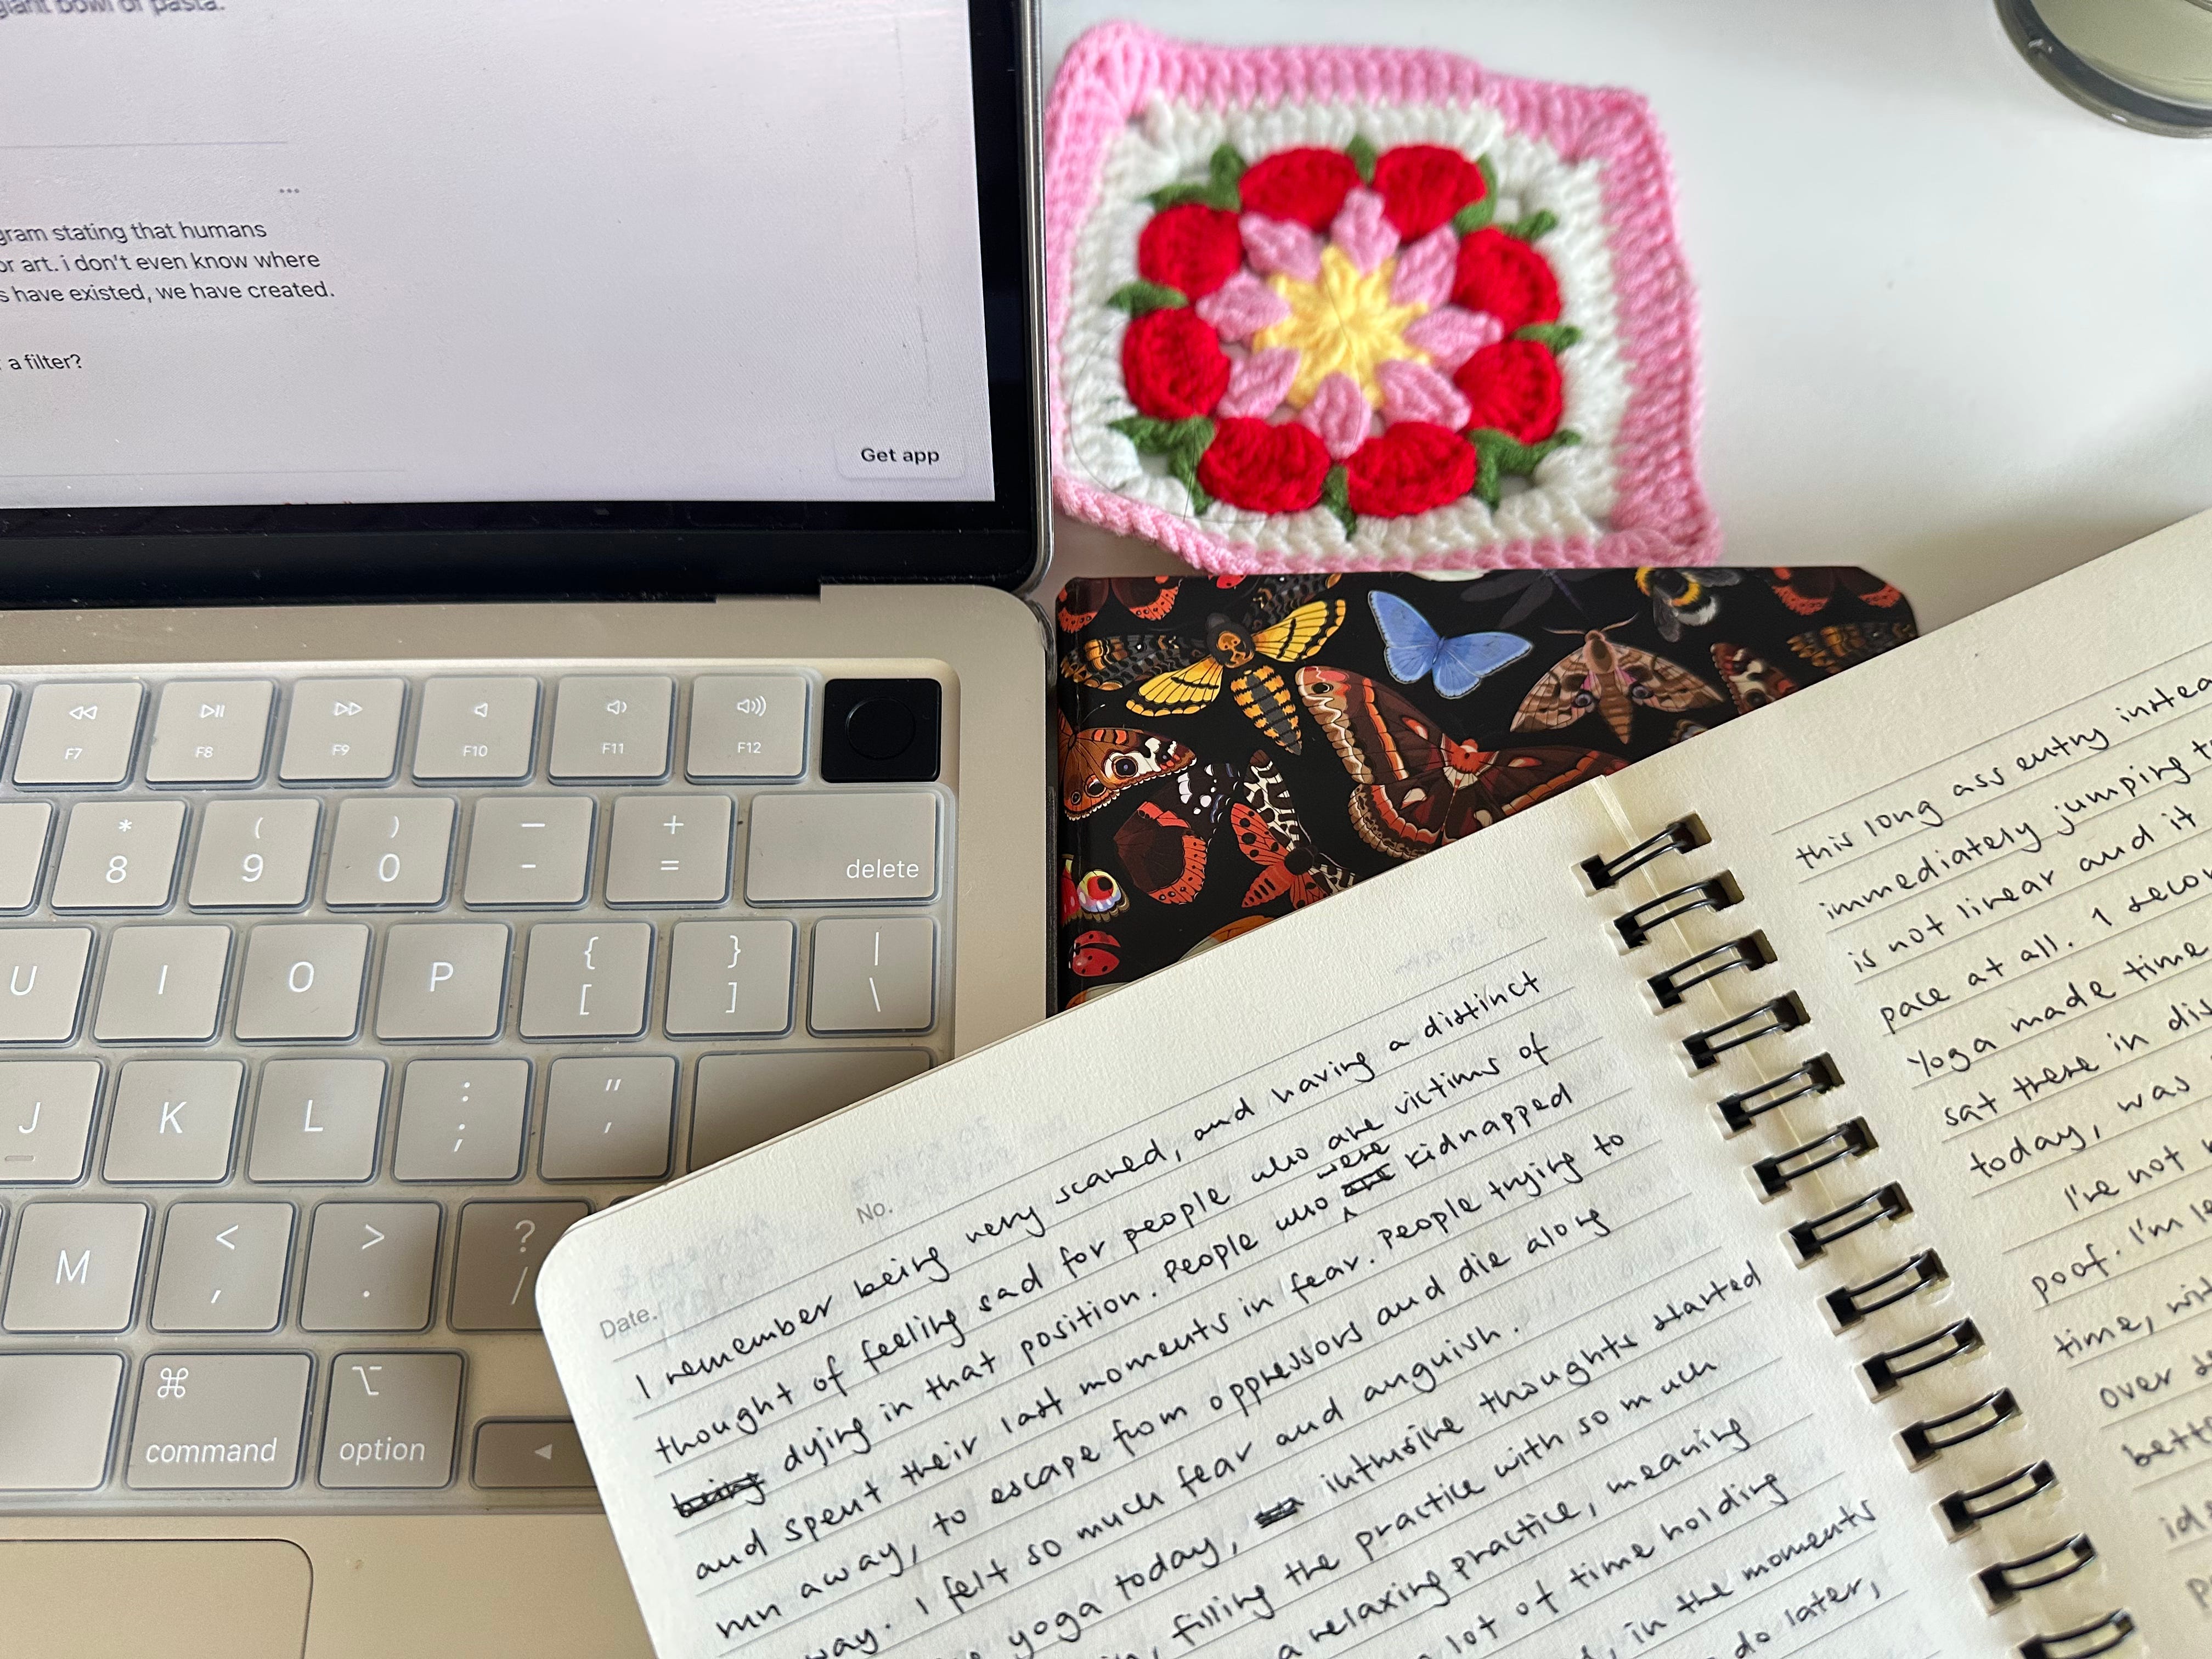 giant bowl of pasta.
...
gram stating that humans
or art. i don't even know where
s have existed, we have created.
a filter?
Get app
F7 F8 F9 F10 F11 F12
* ( ) — +
8 9 0 - = delete
{ } |
U I O P [ ] \
: "
J K L ; '
< > ?
M , . /
⌘ ⌥
command option
No.
Date.
I remember being very scared, and having a distinct
thought of feeling sad for people who are victims of
were
dying in that position. People who are kidnapped
and spent their last moments in fear. People trying to
run away, to escape from oppressors and die along
way. I felt so much fear and anguish.
yoga today, intrusive thoughts started
filling the practice with so much
a relaxing practice, meaning
lot of time holding
in the moments
do later,
this long ass entry instea
immediately jumping t
is not linear and it
pace at all. 1 secon
Yoga made time
sat there in dis
today, was
I've not
poof. I'm le
time, wit
over
bett